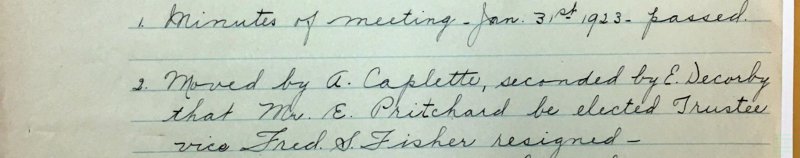 1. Minutes of meeting - Jan. 31st 1923 - passed.
2. Moved by A. Caplette, seconded by E. Decorby
that Mr. E. Pritchard be elected Trustee
vice Fred. S. Fisher resigned -